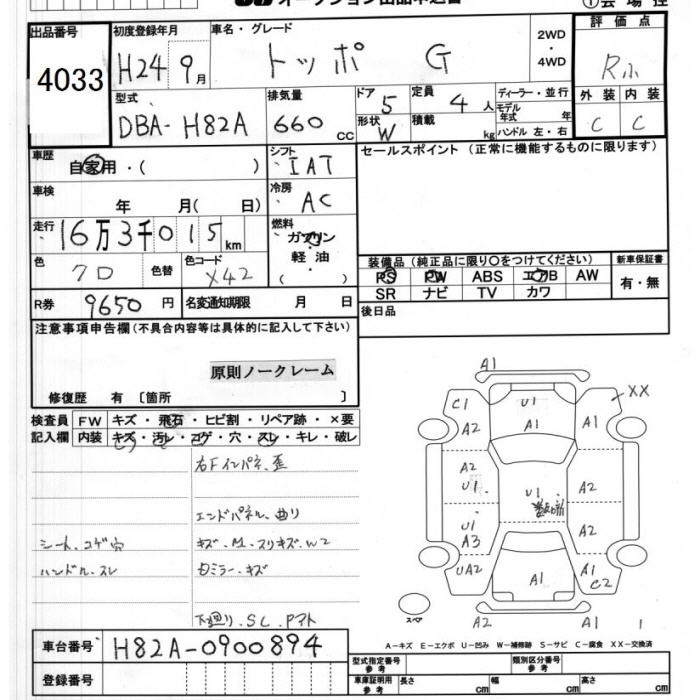 オークション出品申込書
出品番号 4033
初度登録年月 H24 9月
車名・グレード トッポ G
2WD・4WD
評価点 R小
型式 DBA-H82A
排気量 660 CC
ドア 5 形状 W
定員 4人 積載 kg
ディーラー・並行
モデル年式 年
ハンドル 左・右
外装 内装
C C
車歴 自家用・( )
シフト IAT
セールスポイント (正常に機能するものに限ります)
車検 年 月( 日)
冷房 AC
走行 16万3千015 km
燃料 ガソリン・軽油・( )
色 クロ 色替 色コード X42
装備品 (純正品に限り○をつけてください)
新車保証書
PS PW ABS エアB AW
有・無
SR ナビ TV カワ
R券 9650円 名変通知期限 月 日
後日品
注意事項申告欄 (不具合内容等は具体的に記入して下さい)
原則ノークレーム
修復歴 有 〔箇所 〕
検査員記入欄
FW キズ・飛石・ヒビ割・リペア跡・×要
内装 キズ・汚レ・コゲ・穴・スレ・キレ・破レ
右Fインパネ、歪
エンドパネル、曲り
シート、コゲ穴 キズ・M・スリキズ・W2
ハンドル、スレ 右ミラー・キズ
下廻り、SC、Pマト
A1
U1 A1
C1 A2
XX
A1
A2 U1
U1
A2
U1 A3
A2
UA2
A1
A1 C2
スペア
A2 A1 1
A-キズ E-エクボ U-凹み W-補修跡 S-サビ C-腐食 XX-交換済
車台番号 H82A-0900894
登録番号
型式指定番号 参考
類別区分番号 参考
車庫証明用 参考 長さ cm 幅 cm 高さ cm